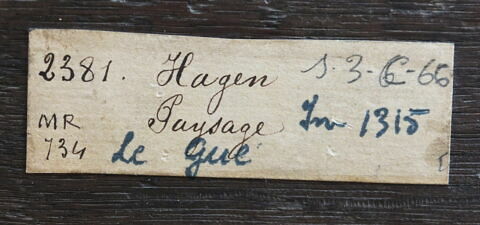 2381. Hagen S-3-6-66
MR Paysage In 1315
734 Le Gué